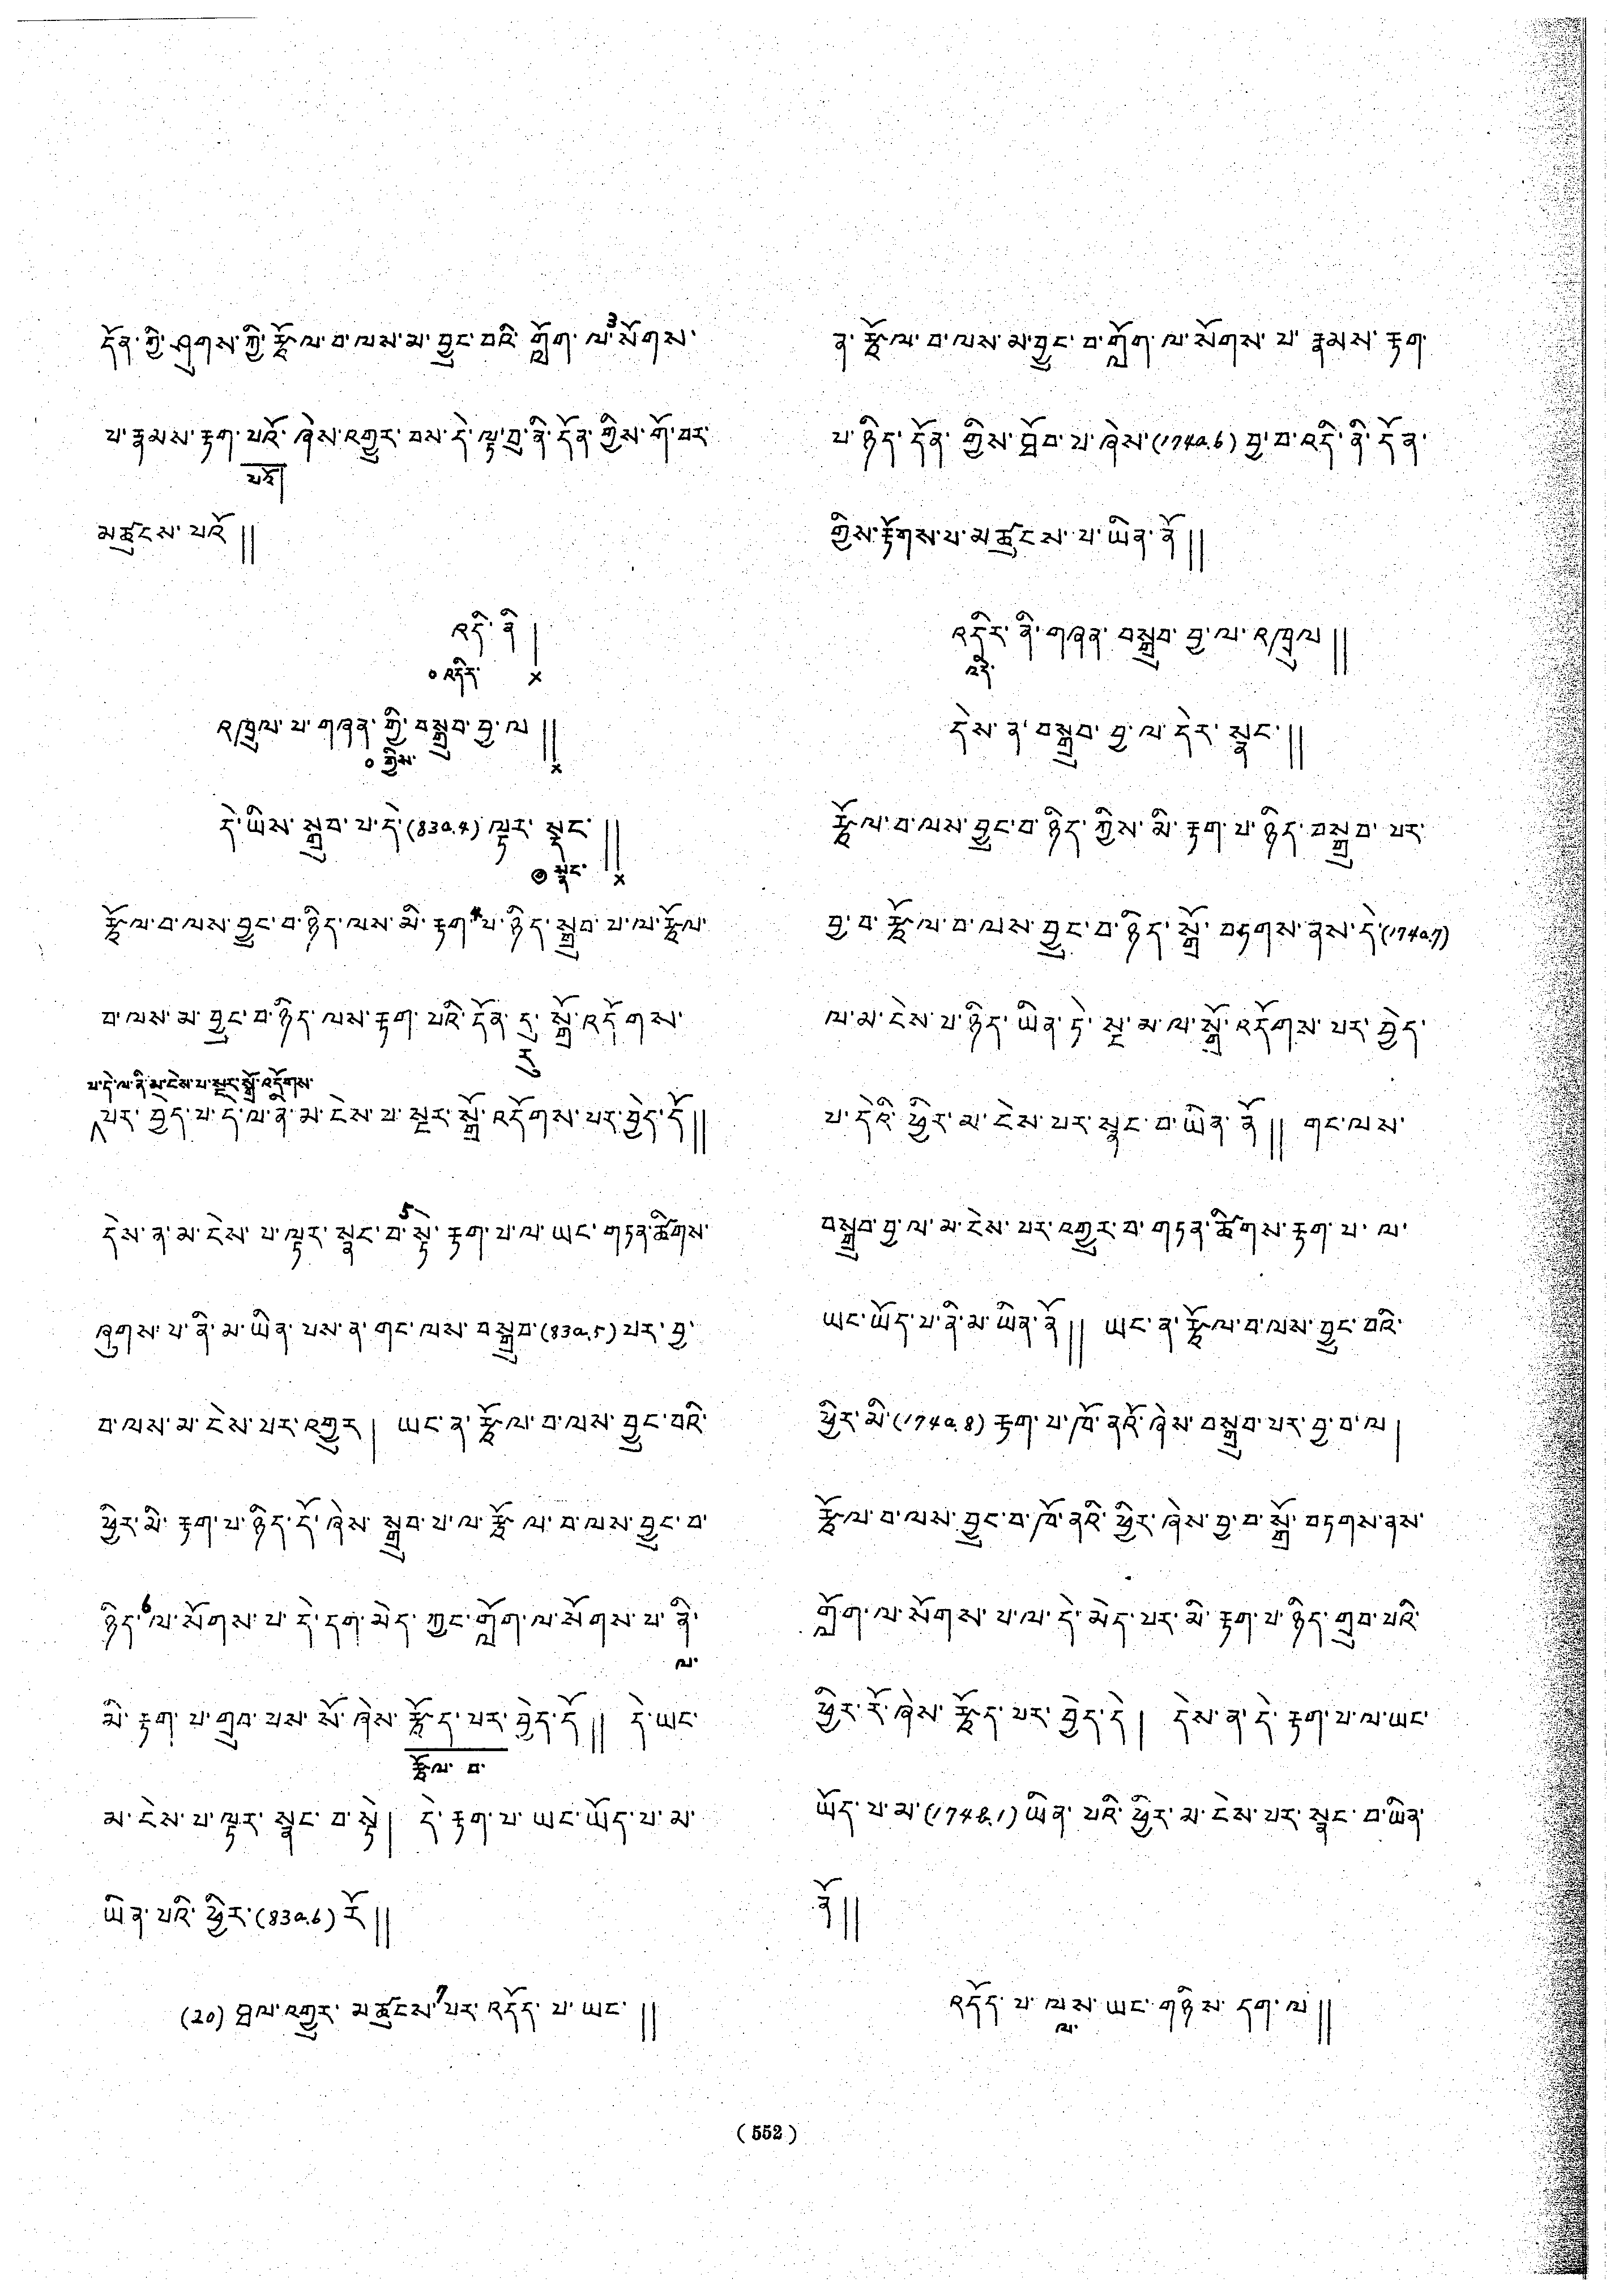 དོན་ཀྱི་ཤུགས་ཀྱི་རྩོལ་བ་ལས་མ་བྱུང་བའི་གློག་ལ་3སོགས་
པ་རྣམས་རྟག་པའོ་ཞེས་འགྱུར་བས་དེ་ལྟ་བུ་ནི་དོན་གྱིས་གོ་བར་
མཚུངས་པའོ༎
འདི་ནི།
༠འདིར་ ×
འཁྲུལ་པ་གཞན་གྱི་བསྒྲུབ་བྱ་ལ༎
༠གྱིས་ ×
དེ་ཡིས་སྒྲུབ་པ་དེ་(83a.4)ལྟར་སྣང་༎
སྣང་ ×
རྩོལ་བ་ལས་བྱུང་བ་ཉིད་ལས་མི་རྟག་4པ་ཉིད་སྒྲུབ་པ་ལ་རྩོལ་
བ་ལས་མ་བྱུང་བ་ཉིད་ལས་རྟག་པའི་དོན་དུ་སྒྲོ་འདོགས་
རུ
པ་དེ་ལ་ནི་མ་ངེས་པ་སྔར་སྒྲོ་འདོགས་
པར་བྱེད་པ་དེ་ལ་ནི་མ་ངེས་པ་སྔར་སྒྲོ་འདོགས་པར་བྱེད་དོ༎
དེས་ན་མ་ངེས་པ་ལྟར་སྣང་བ་5སྟེ་རྟག་པ་ལ་ཡང་གཏན་ཚིགས་
ཞུགས་པ་ནི་མ་ཡིན་པས་ན་གང་ལས་བསྒྲུབ་(83a.5)པར་བྱ་
བ་ལས་མ་ངེས་པར་འགྱུར། ཡང་ན་རྩོལ་བ་ལས་བྱུང་བའི་
ཕྱིར་མི་རྟག་པ་ཉིད་དོ་ཞེས་སྒྲུབ་པ་ལ་རྩོལ་བ་ལས་བྱུང་བ་
ཉིད་6ལ་སོགས་པ་དེ་དག་མེད་ཀྱང་གློག་ལ་སོགས་པ་ནི་
ལ་
མི་རྟག་པ་གྲུབ་པས་སོ་ཞེས་རྩོད་པར་བྱེད་དོ༎ དེ་ཡང་
རྩོལ་བ་
མ་ངེས་པ་ལྟར་སྣང་བ་སྟེ། དེ་རྟག་པ་ཡང་ཡོད་པ་མ་
ཡིན་པའི་ཕྱིར་(83a.6)རོ༎
(20) ཐལ་འགྱུར་མཚུངས་7པར་འདོད་པ་ཡང་༎
ན་རྩོལ་བ་ལས་མ་བྱུང་བ་གློག་ལ་སོགས་པ་རྣམས་རྟག་
པ་ཉིད་དོན་གྱིས་ཐོབ་པ་ཞེས་(174a.6)བྱ་བ་འདི་ནི་དོན་
གྱིས་རྟོགས་པ་མཚུངས་པ་ཡིན་ནོ༎
འདིར་ནི་གཞན་བསྒྲུབ་བྱ་ལ་འཁྲུལ༎
འདི་
དེས་ན་བསྒྲུབ་བྱ་ལ་དེར་སྣང་༎
རྩོལ་བ་ལས་བྱུང་བ་ཉིད་ཀྱིས་མི་རྟག་པ་ཉིད་བསྒྲུབ་པར་
བྱ་བ་རྩོལ་བ་ལས་བྱུང་བ་ཉིད་སྒྲོ་བཏགས་ནས་དེ་(174a.7)
ལ་མ་ངེས་པ་ཉིད་ཡིན་ཏེ་སྔ་མ་ལ་སྒྲོ་འདོགས་པར་བྱེད་
པ་དེའི་ཕྱིར་མ་ངེས་པར་སྣང་བ་ཡིན་ནོ༎ གང་ལས་
བསྒྲུབ་བྱ་ལ་མ་ངེས་པར་འགྱུར་བ་གཏན་ཚིགས་རྟག་པ་ལ་
ཡང་ཡོད་པ་ནི་མ་ཡིན་ནོ༎ ཡང་ན་རྩོལ་བ་ལས་བྱུང་བའི་
ཕྱིར་མི་(174a.8)རྟག་པ་ཁོ་ནའོ་ཞེས་བསྒྲུབ་པར་བྱ་བ་ལ།
རྩོལ་བ་ལས་བྱུང་བ་ཁོ་ནའི་ཕྱིར་ཞེས་བྱ་བ་སྒྲོ་བཏགས་ནས་
གློག་ལ་སོགས་པ་ལ་དེ་མེད་པར་མི་རྟག་པ་ཉིད་གྲུབ་པའི་
ཕྱིར་རོ་ཞེས་རྩོད་པར་བྱེད་དེ། དེས་ན་དེ་རྟག་པ་ལ་ཡང་
ཡོད་པ་མ་(174b.1)ཡིན་པའི་ཕྱིར་མ་ངེས་པར་སྣང་བ་ཡིན་
ནོ༎
འདོད་པ་ལས་ཡང་གཉིས་དག་ལ༎
ལ་
(552)